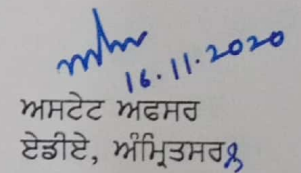 16.11.2020
ਅਸਟੇਟ ਅਫਸਰ
ਏਡੀਏ, ਅੰਮ੍ਰਿਤਸਰ